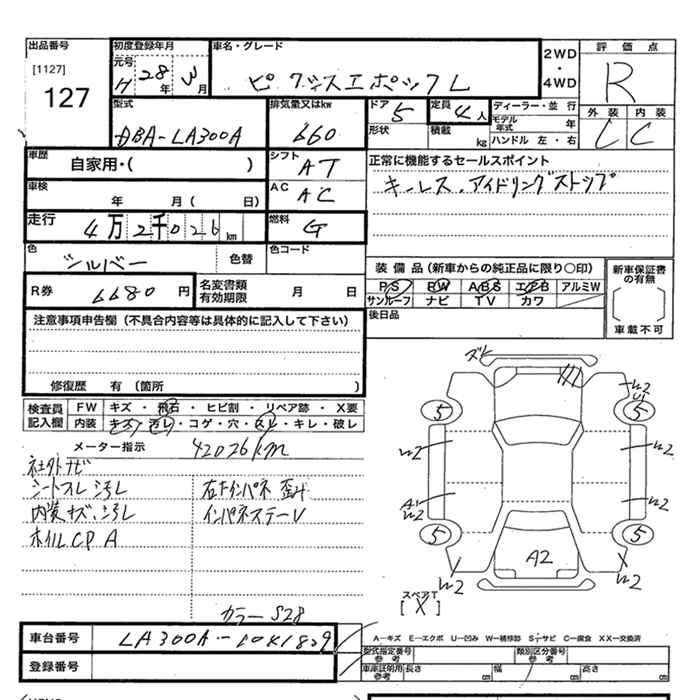 出品番号 初度登録年月 車名・グレード
[1127] 元号 H 28年 月 ピクシスエポック L 2WD・4WD 評価点 R
127
型式 DBA-LA300A 排気量又はkw 660 ドア 5 定員 4人 ディーラー・並行
形状 積載 kg モデル年式 年 外装 C 内装 C
ハンドル 左・右
車歴 自家用・( ) シフト AT 正常に機能するセールスポイント
車検 年 月( 日) AC AC キーレス.アイドリングストップ
走行 4万2千026km 燃料 G
色 シルバー 色替 色コード
装備品(新車からの純正品に限り○印) 新車保証書の有無
R券 6680円 名変書類有効期限 月 日 PS PW ABS エアB アルミW
サンルーフ ナビ TV カワ 車載不可
注意事項申告欄(不具合内容等は具体的に記入して下さい) 後日品
修復歴 有(箇所 )
検査員記入欄 FW キズ・飛石・ヒビ割・リペア跡・X要
内装 キズ・汚レ・コゲ・穴・スレ・キレ・破レ
メーター指示 42026km
社外ナビ
シートスレ汚レ 右Fインパネ 歪ミ
内装キズ、汚レ インパネステーV
ホイルCP A
カラー S28
ズレ
W2
U1
5 5
W2 W2
A1 W2
W2
5 5
A2
W2 W2
スペアT
[X]
車台番号
A-キズ E-エクボ U-凹み W-補修跡 S-サビ C-腐食 XX-交換済
登録番号 型式指定番号 参考 類別区分番号 参考
車庫証明用 参考 長さ cm 幅 cm 高さ cm